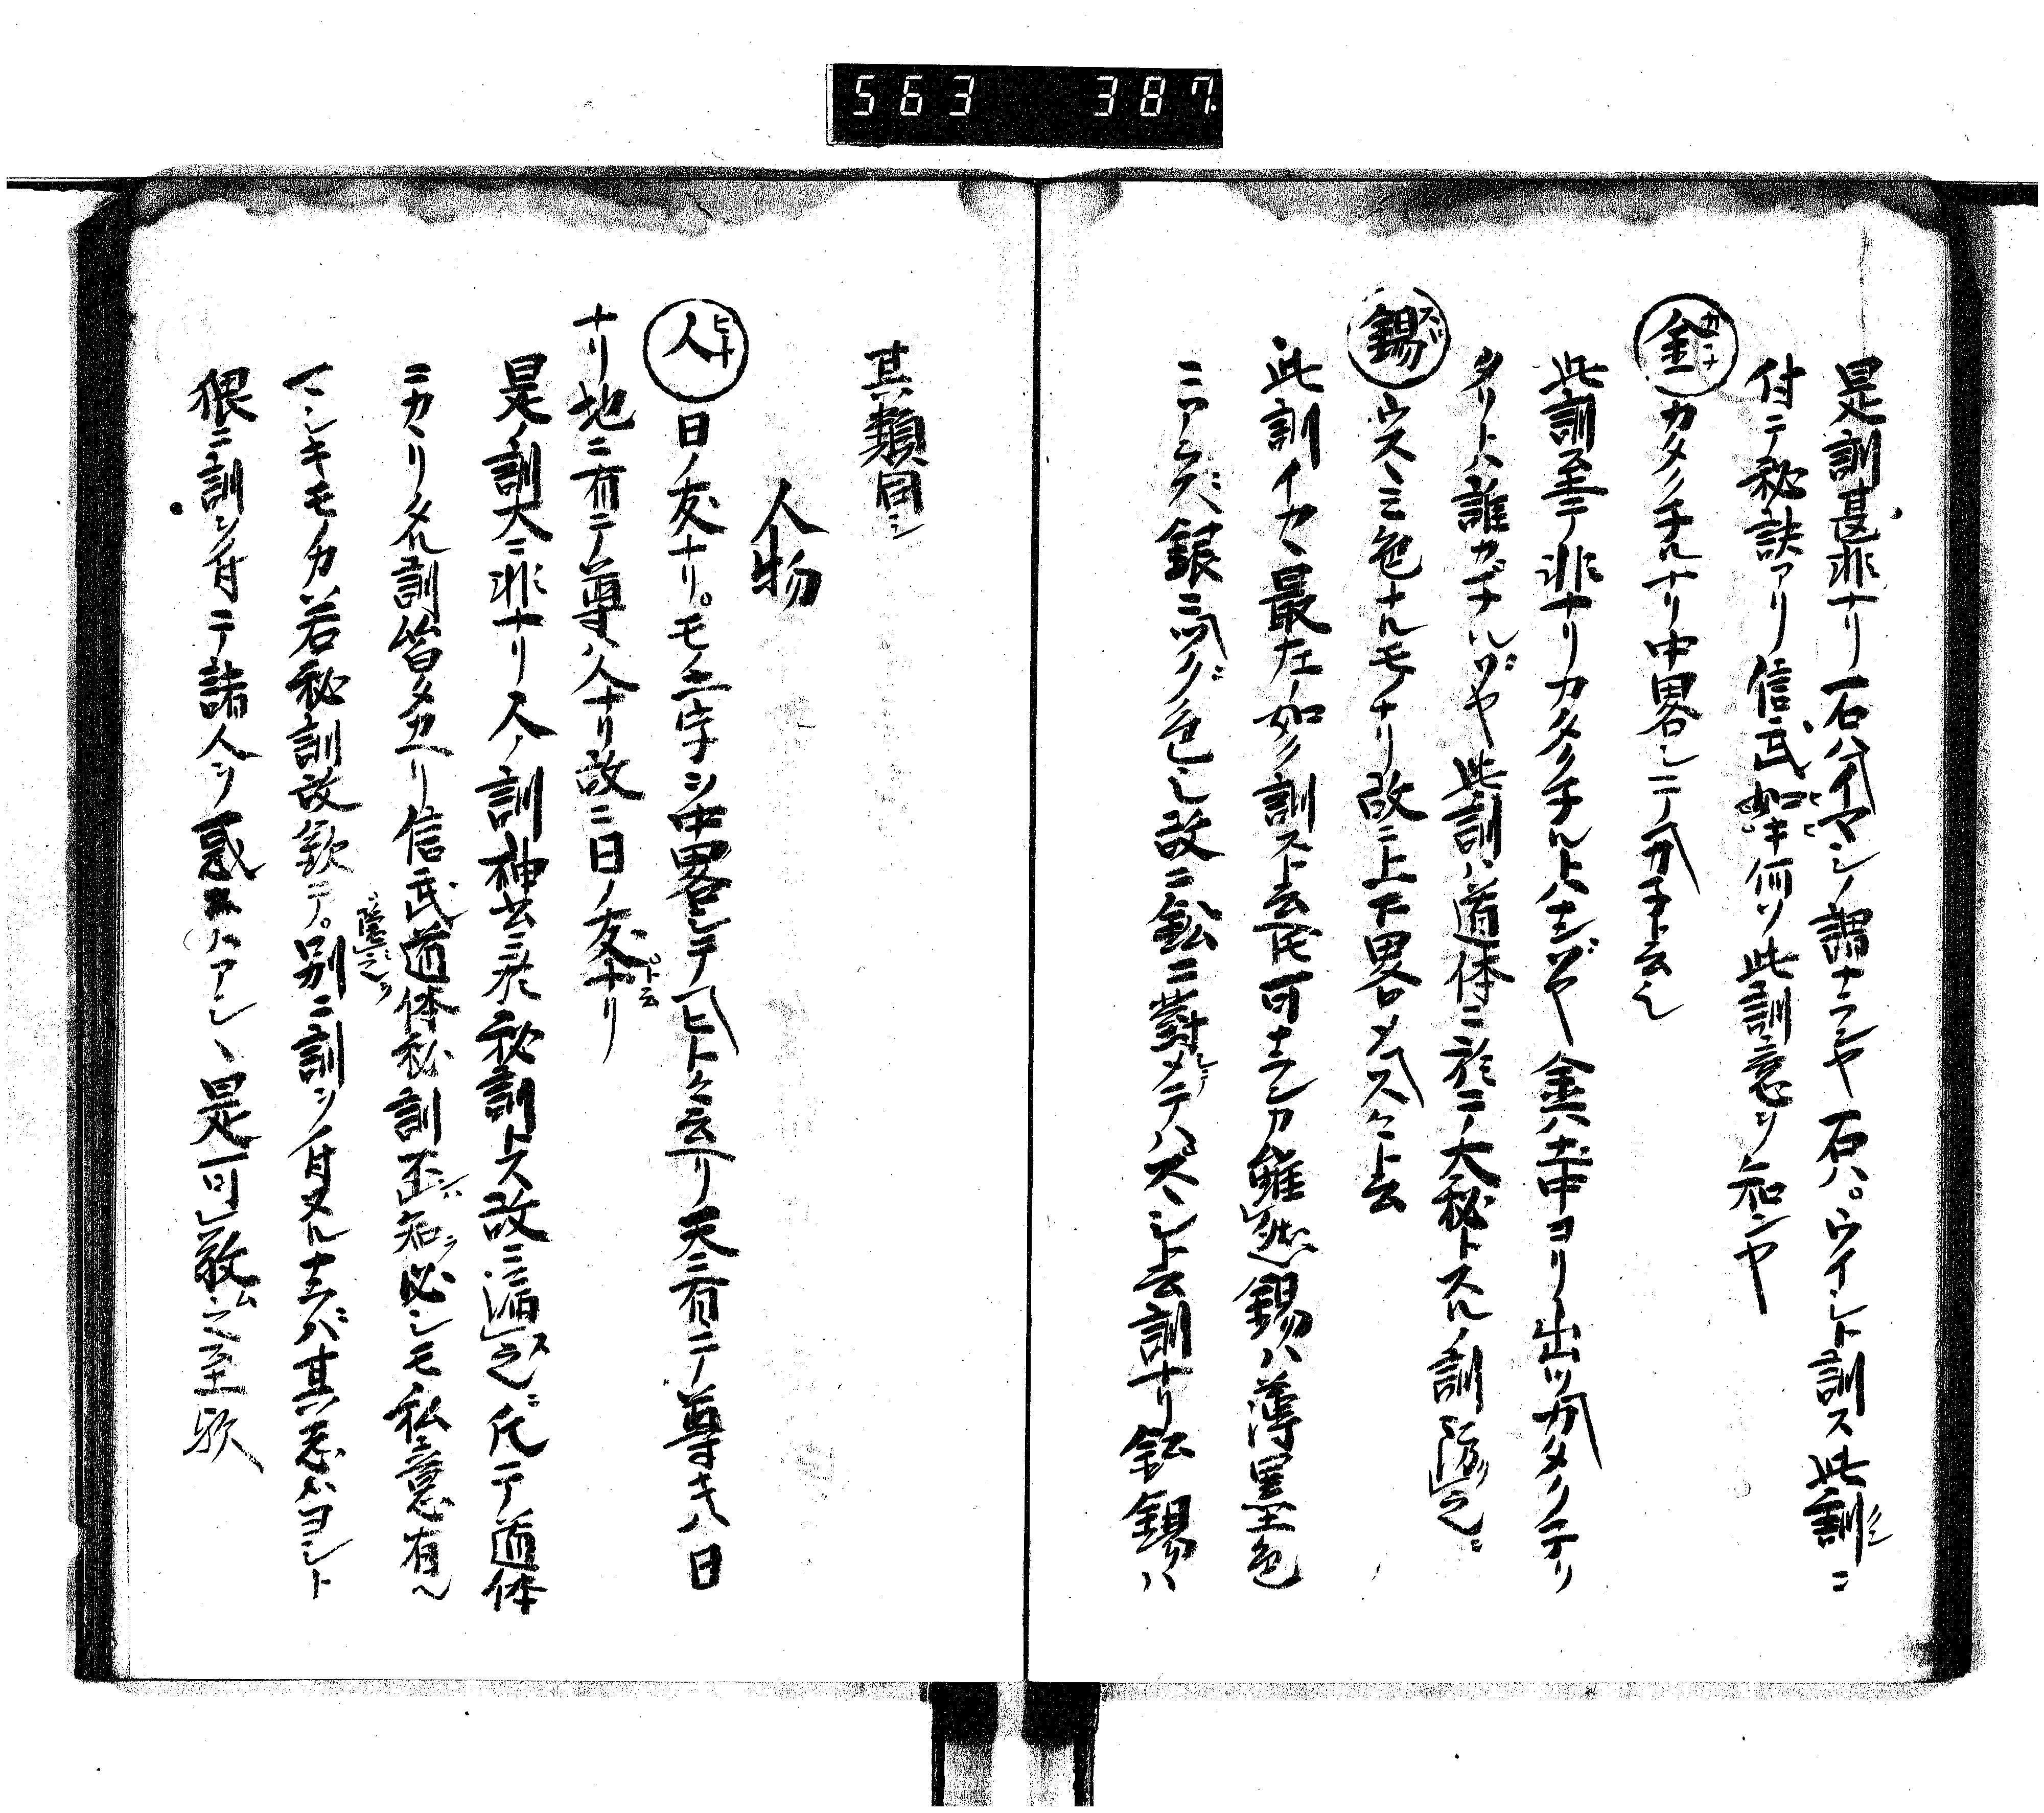 563 387
是訓甚非ナリ石ハイマシノ謂ナラシヤ石ハ。ウイシト訓ス此訓ニ
付テ秘訣アリ信武 何ソ此訓意ヲ知ンヤ
金 カタノチルナリ中畧シテカ子ト云也
此訓至テ非ナリカタクチルトハナンゾヤ金ハ土中ヨリ出ツカタクテリ
タリト誰カチルゾヤ此訓ハ道体ニ於テ大秘トスルノ訓
錫 ウスミ色ナルモノナリ故ニ上下畧メスヽト云
此訓イカヽ最左如ク訓スト云氏可ナランカ雖然錫ハ薄黒色
ニアラズ銀ミツノ色也故ニ鈆ニ對メテハスヽシト云訓ナリ鈆錫ハ
其類同シ
人物
人 ヒト 日ノ友ナリ。モノ二字ヲ中畧シテヒトヽ云ヘリ天ニ有テ尊キハ日
ナリ地ニ有テ尊ハ人ナリ故ニ日ノ友ナリト云
是ノ訓大ニ非ナリ人ノ訓神公ニ於秘訓トス故ニ 之 テ道体
ニカヽリタル訓皆タカヘリ信武道体秘訓 知 必シモ私意有
マシキモノカ若秘訓故欤テ。別ニ訓ヲ付ヌルナラバ其 ハヨシト
猥ニ訓ヲ付テ諸人ヲ惑スハアシヽ是可 之至欤